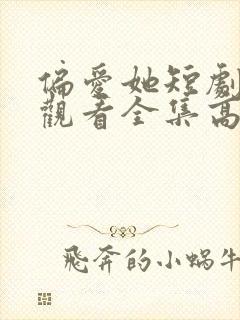 偏愛她短劇
觀看全集高
飛奔的小蝸牛